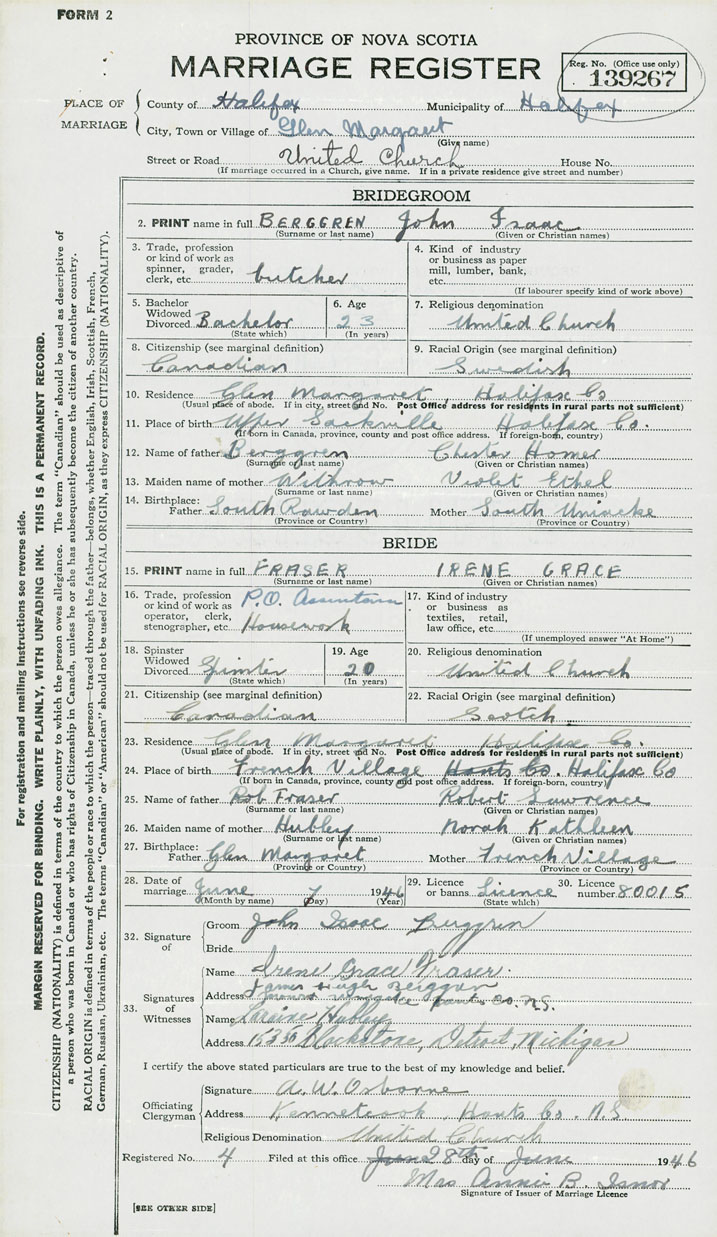 FORM 2
PROVINCE OF NOVA SCOTIA
MARRIAGE REGISTER
Reg. No. (Office use only)
139267
PLACE OF MARRIAGE
County of Halifax Municipality of Halifax
City, Town or Village of Glen Margaret
(Give name)
Street or Road United Church House No.
(If marriage occurred in a Church, give name. If in a private residence give street and number)
BRIDEGROOM
2. PRINT name in full BERGGREN John Isaac
(Surname or last name) (Given or Christian names)
3. Trade, profession or kind of work as spinner, grader, clerk, etc. butcher
4. Kind of industry or business as paper mill, lumber, bank, etc.
(If labourer specify kind of work above)
5. Bachelor Widowed Divorced Bachelor
(State which)
6. Age 23
(In years)
7. Religious denomination
United Church
8. Citizenship (see marginal definition)
Canadian
9. Racial Origin (see marginal definition)
Swedish
10. Residence Glen Margaret, Halifax Co
(Usual place of abode. If in city, street and No. Post Office address for residents in rural parts not sufficient)
11. Place of birth Upper Sackville Halifax Co.
(If born in Canada, province, county and post office address. If foreign-born, country)
12. Name of father Berggren Chester Homer
(Surname or last name) (Given or Christian names)
13. Maiden name of mother Withrow Violet Ethel
(Surname or last name) (Given or Christian names)
14. Birthplace: Father South Rawdon Mother South Uniacke
(Province or Country) (Province or Country)
BRIDE
15. PRINT name in full FRASER IRENE GRACE
(Surname or last name) (Given or Christian names)
16. Trade, profession or kind of work as operator, clerk, stenographer, etc. P.O. Housework
17. Kind of industry or business as textiles, retail, law office, etc.
(If unemployed answer "At Home")
18. Spinster Widowed Divorced Spinster
(State which)
19. Age 20
(In years)
20. Religious denomination
United Church
21. Citizenship (see marginal definition)
Canadian
22. Racial Origin (see marginal definition)
Scotch
23. Residence Glen Margaret Halifax Co.
(Usual place of abode. If in city, street and No. Post Office address for residents in rural parts not sufficient)
24. Place of birth French Village Hants Co. Halifax Co
(If born in Canada, province, county and post office address. If foreign-born, country)
25. Name of father Rob Fraser Robert Lawrence
(Surname or last name) (Given or Christian names)
26. Maiden name of mother Hubley Norah Kathleen
(Surname or last name) (Given or Christian names)
27. Birthplace: Father Glen Margaret Mother French Village
(Province or Country) (Province or Country)
28. Date of marriage June 7 1946
(Month by name) (Day) (Year)
29. Licence or banns Licence
(State which)
30. Licence number 80015
32. Signature of
Groom John Isaac Berggren
Bride
33. Signatures of Witnesses
Name Irene Grace Fraser.
James Hugh Berggren
Address Hants Co. N.S.
Name Loraine Hubley
Address 15350 Blackstone, Detroit, Michigan
I certify the above stated particulars are true to the best of my knowledge and belief.
Officiating Clergyman
Signature A. W. Osborne
Address Kennetcook, Hants Co. N.S
Religious Denomination United Church
Registered No. 4 Filed at this office June 28th day of June 1946
Mrs Annie B. Isnor
Signature of Issuer of Marriage Licence
[SEE OTHER SIDE]
For registration and mailing instructions see reverse side.
MARGIN RESERVED FOR BINDING. WRITE PLAINLY, WITH UNFADING INK. THIS IS A PERMANENT RECORD.
CITIZENSHIP (NATIONALITY) is defined in terms of the country to which the person owes allegiance. The term "Canadian" should be used as descriptive of
a person who was born in Canada or who has rights of Citizenship in Canada, unless he or she has subsequently become the citizen of another country.
RACIAL ORIGIN is defined in terms of the people or race to which the person—traced through the father—belongs, whether English, Irish, Scottish, French,
German, Russian, Ukrainian, etc. The terms "Canadian" or "American" should not be used for RACIAL ORIGIN, as they express CITIZENSHIP (NATIONALITY).